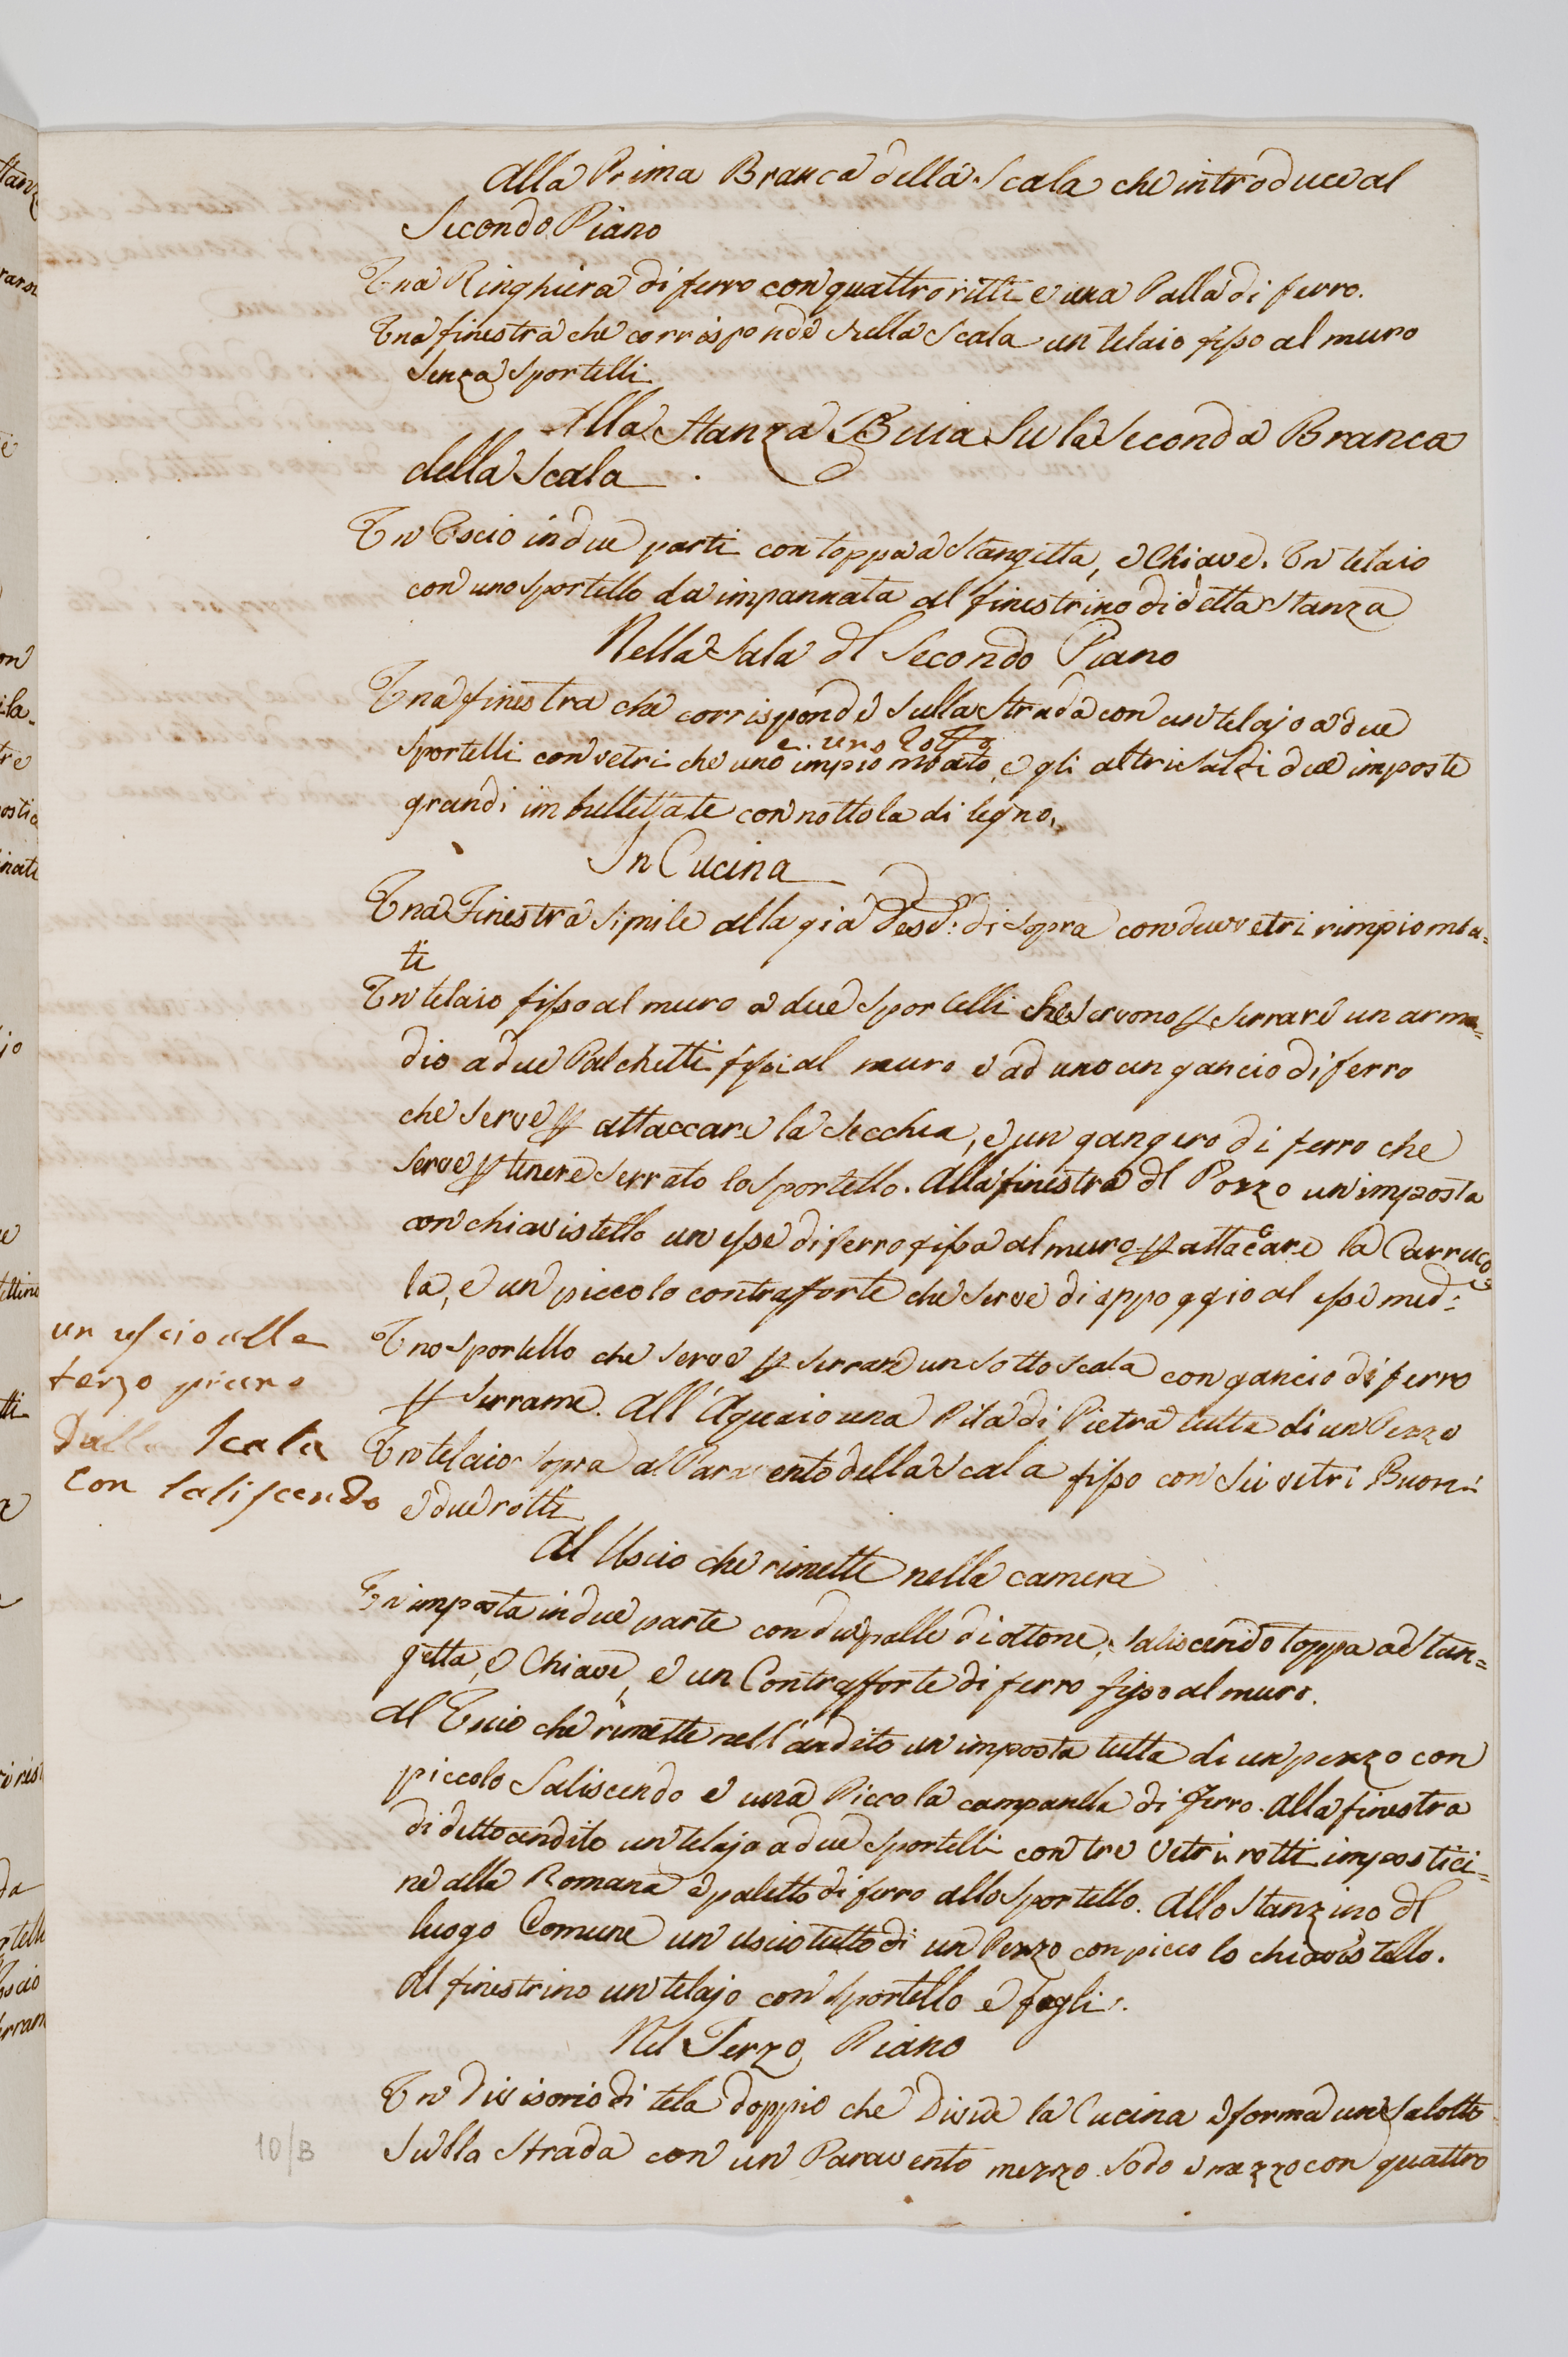 Alla Prima Branca della Scala che introduce al
Secondo Piano
Una Ringhiera di ferro con quattro ritti e una Palla di ferro.
Una finestra che corrisponde sulla Scala un telaio fisso al muro
senza sportelli
Alla Stanza Buia su la Seconda Branca
della Scala
Un Uscio in due parti con toppa a Stangetta, e Chiave. Un telaio
con uno sportello da impannata al finestrino di detta Stanza
Nella Sala dl Secondo Piano
Una finestra che corrisponde sulla Strada con un telajo a due
e uno rotto
sportelli con vetri che uno impiombato, e gli altri saldi due imposte
grandi imbullettate con nottola di legno,
In Cucina
Una Finestra simile alla già Desd: di sopra con due vetri rimpiomba=
ti
Un telaio fisso al muro a due sportelli che servono p serrare un arma=
dio a due Palchetti fissi al muro e ad uno un gancio di ferro
che serve p attaccare la secchia, e un ganghero di ferro che
serve p tenere serrato lo sportello. Alla finestra dl Pozzo un'imposta
con chiavistello un esse di ferro fissa al muro p attaccare la Carruco=
la, e un piccolo contrafforte che serve di appoggio al esse med:
Uno sportello che serve p serrare un sotto scala con gancio di ferro
p serrame. All'Aquaio una Pila di Pietra tutta di un Pezzo
Un telaio sopra al Paravento della Scala fisso con sei vetri Buoni
e due rotti
un uscio alla
terzo piano
Dalla Scala
con saliscendo
Al Uscio che rimette nella camera
Un imposta in due parte con due palle di ottone, saliscendo toppa a Stan=
getta, e Chiave, e un Contrafforte di ferro fisso al muro.
Al Uscio che rimette nell'andito un imposta tutta di un pezzo con
piccolo Saliscendo e una Piccola campanella di ferro. Alla finestra
di detto andito un telajo a due sportelli con tre vetri rotti impostici=
ne alla Romana e paletto di ferro allo sportello. Allo Stanzino dl
luogo Comune un uscio tutto di un Pezzo con piccolo chiavistello.
Al finestrino un telajo con sportello e fogli.
Nel Terzo Piano
Un Divisorio di tela doppio che Divide la Cucina e forma un Salotto
sulla Strada con un Paravento mezzo sodo e mezzo con quattro
10/B